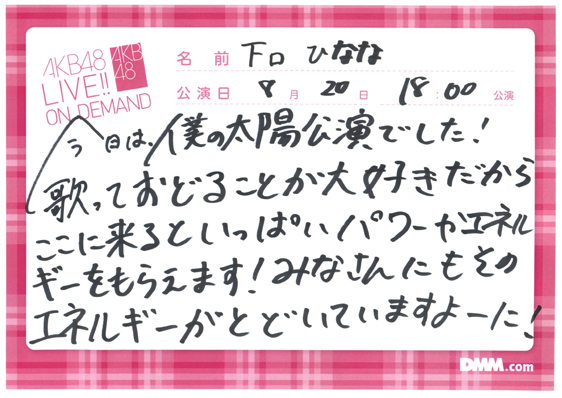 AKB48
LIVE!!
ON DEMAND
AKB
48
名前 下口 ひなな
公演日 8月 20日 18:00 公演
今日は、僕の太陽公演でした!
歌っておどることが大好きだから
ここに来るといっぱいパワーやエネル
ギーをもらえます!みなさんにもその
エネルギーがとどいていますよーに!
DMM.com